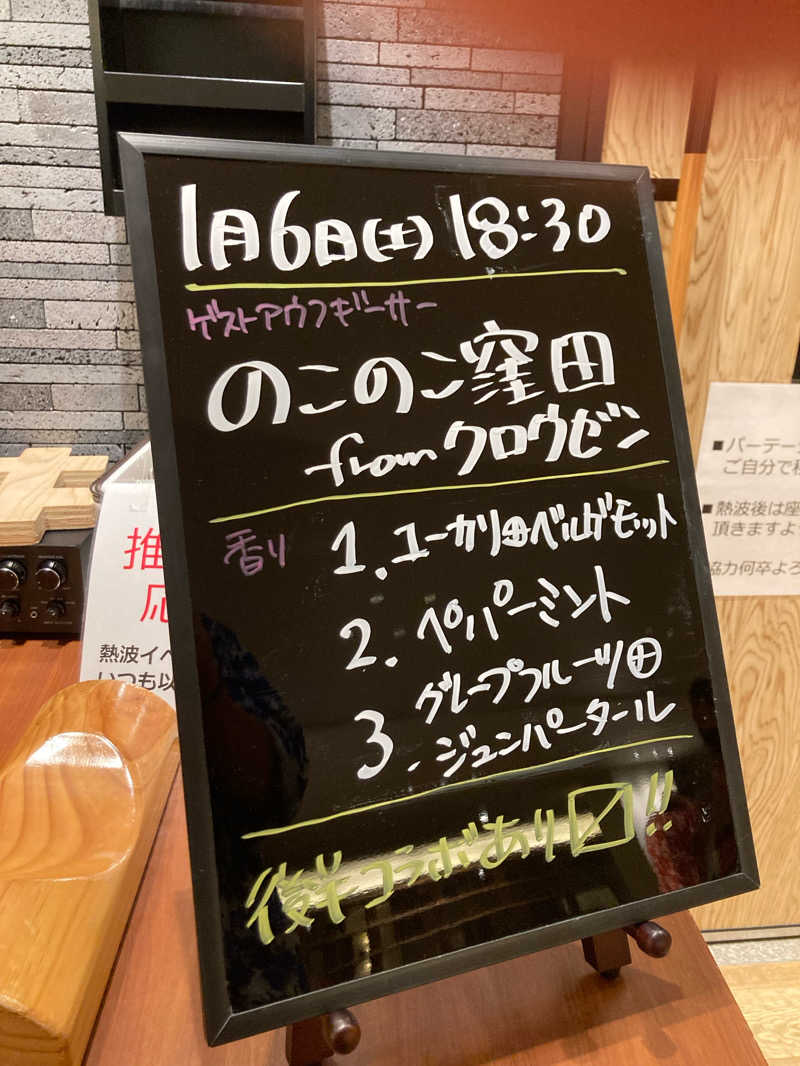 1月6日(土) 18:30
ゲストアウフギーサー
のこのこ窪田
from クロウゼン
香り
1. ユーカリ⊞ベルガモット
2. ペパーミント
3. グレープフルーツ⊞
ジュンパータール
後半コラボあり〼!!
推
応
熱波イベ
いつも以
■パーテー
ご自分で
■熱波後は座
頂きますよ
協力何卒よろ